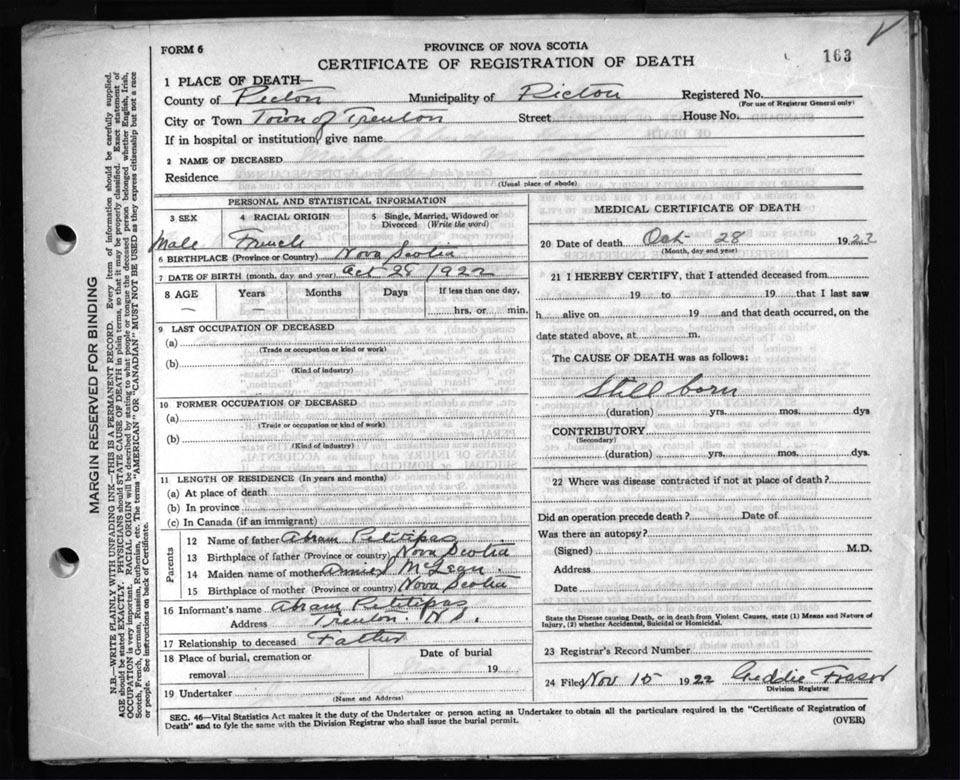 163
FORM 6
PROVINCE OF NOVA SCOTIA
CERTIFICATE OF REGISTRATION OF DEATH
1 PLACE OF DEATH—
County of Pictou Municipality of Pictou Registered No.
(For use of Registrar General only)
City or Town Town of Trenton Street House No.
If in hospital or institution, give name
2 NAME OF DECEASED
Residence
(Usual place of abode)
PERSONAL AND STATISTICAL INFORMATION
3 SEX 4 RACIAL ORIGIN 5 Single, Married, Widowed or Divorced (Write the word)
Male French
6 BIRTHPLACE (Province or Country) Nova Scotia
7 DATE OF BIRTH (month, day and year) Oct 28 1922
8 AGE Years Months Days If less than one day,
— — hrs. or min.
9 LAST OCCUPATION OF DECEASED
(a)
(Trade or occupation or kind or work)
(b)
(Kind of industry)
10 FORMER OCCUPATION OF DECEASED
(a)
(Trade or occupation or kind of work)
(b)
(Kind of industry)
11 LENGTH OF RESIDENCE (In years and months)
(a) At place of death
(b) In province
(c) In Canada (if an immigrant)
Parents
12 Name of father Abram Petitpas
13 Birthplace of father (Province or country) Nova Scotia
14 Maiden name of mother McLean
15 Birthplace of mother (Province or country) Nova Scotia
16 Informant's name Abram Petitpas
Address Trenton N.S.
17 Relationship to deceased Father
18 Place of burial, cremation or removal Date of burial
19
19 Undertaker
(Name and Address)
MEDICAL CERTIFICATE OF DEATH
20 Date of death Oct 28 1922
(Month, day and year)
21 I HEREBY CERTIFY, that I attended deceased from
19 to 19 that I last saw
h alive on 19 and that death occurred, on the
date stated above, at m.
The CAUSE OF DEATH was as follows:
Still born
(duration) yrs. mos. dys
CONTRIBUTORY
(Secondary)
(duration) yrs. mos. dys.
22 Where was disease contracted if not at place of death?
Did an operation precede death? Date of
Was there an autopsy?
(Signed) M.D.
Address
Date
State the Disease causing Death, or in death from Violent Causes, state (1) Means and Nature of
Injury, (2) whether Accidental, Suicidal or Homicidal.
23 Registrar's Record Number
24 Filed Nov 15 1922 Freddie Fraser
Division Registrar
SEC. 46—Vital Statistics Act makes it the duty of the Undertaker or person acting as Undertaker to obtain all the particulars required in the "Certificate of Registration of
Death" and to fyle the same with the Division Registrar who shall issue the burial permit. (OVER)
MARGIN RESERVED FOR BINDING
N.B.—WRITE PLAINLY WITH UNFADING INK—THIS IS A PERMANENT RECORD. Every item of information should be carefully supplied.
AGE should be stated EXACTLY. PHYSICIANS should STATE CAUSE OF DEATH in plain terms, so that it may be properly classified. Exact statement of
OCCUPATION is very important. RACIAL ORIGIN will be described by stating to what people or tongue the deceased person belonged whether English, Irish,
Scotch, French, German, Russian, Ruthenian, etc. The terms "AMERICAN" OR "CANADIAN" MUST NOT BE USED as they express citizenship but not a race
or people. See instructions on back of Certificate.